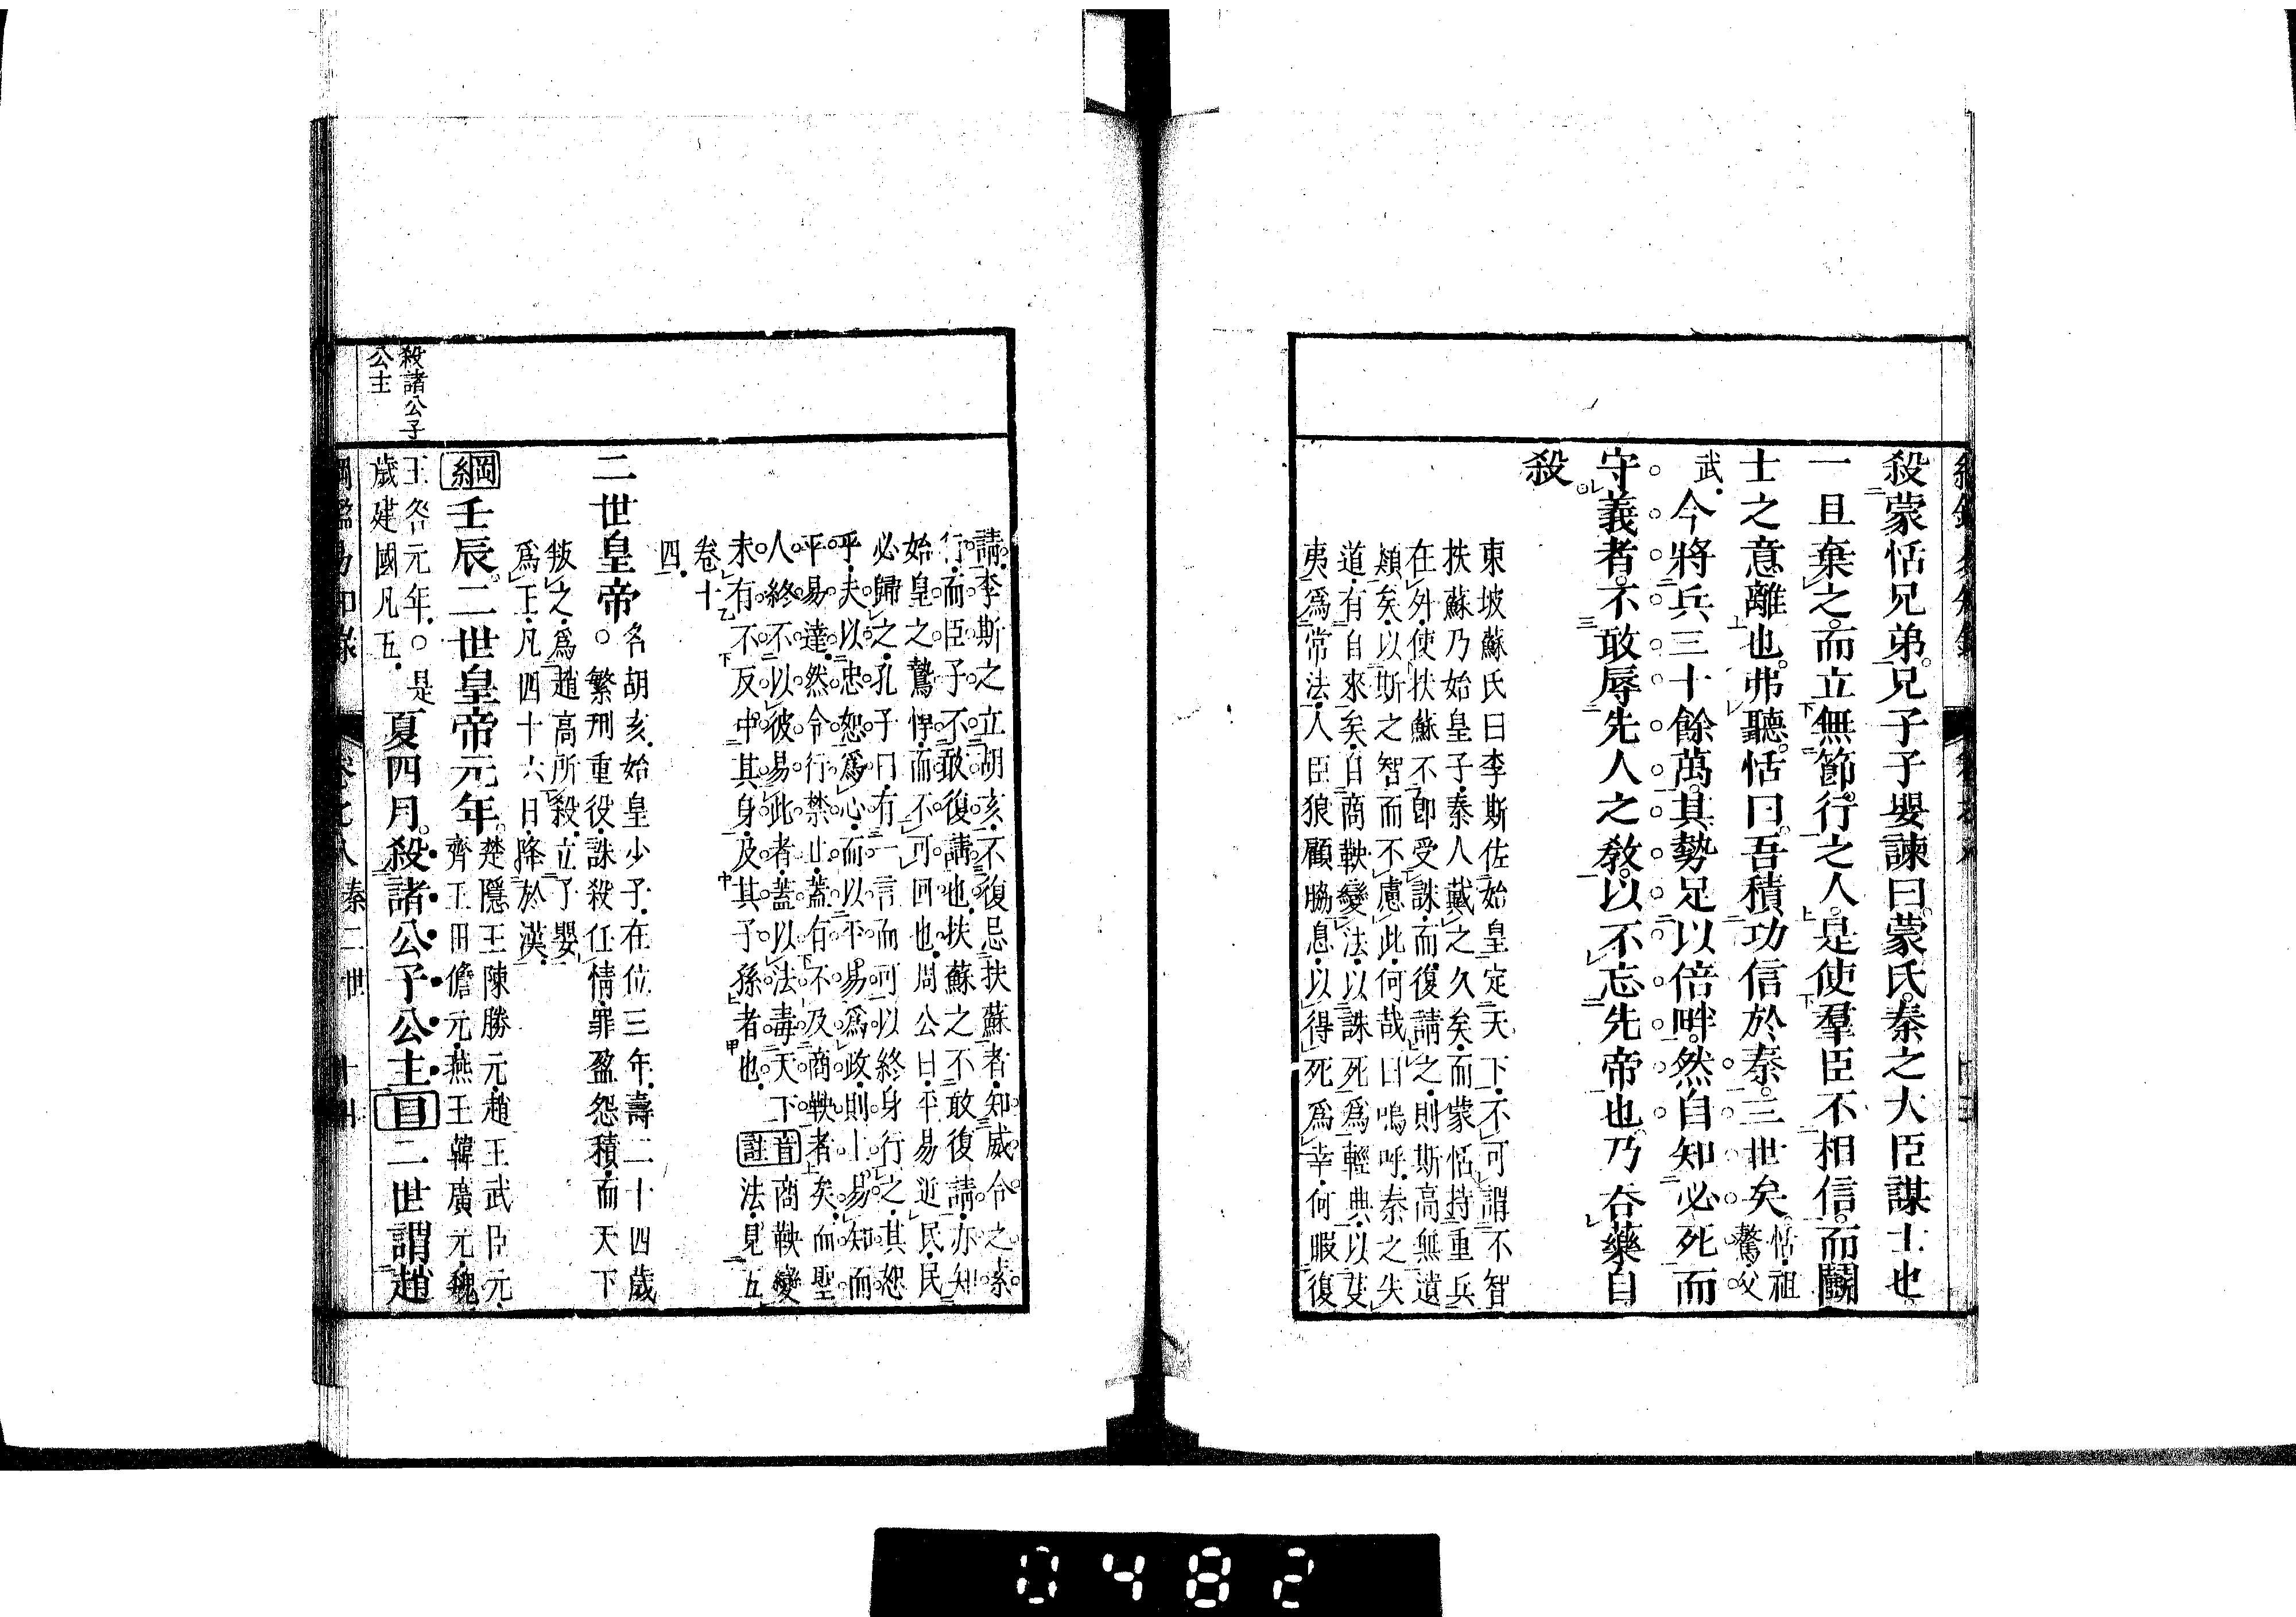 殺蒙恬兄弟兄子子嬰諫曰蒙氏秦之大臣謀士也
一旦棄之而立無節行之人是使羣臣不相信而鬬
士之意離也弗聽恬曰吾積功信於秦三世矣恬祖驁父
武今將兵三十餘萬其勢足以倍畔然自知必死而
守義者不敢辱先人之敎以不忘先帝也乃吞藥自
殺
東坡蘇氏曰李斯佐始皇定天下不可謂不智
扶蘇乃始皇子秦人戴之久矣而蒙恬持重兵
在外使扶蘇不卽受誅而復請之則斯高無遺
類矣以斯之智而不慮此何哉曰嗚呼秦之失
道有自來矣自商鞅變法以誅死爲輕典以夷
夷爲常法人臣狼顧脇息以得死爲幸何暇復
請李斯之立胡亥不復忌扶蘇者知威令之素
行而臣子不敢復請也扶蘇之不敢復請亦知
始皇之鷙悍而不可回也周公曰平易近民民
必歸之孔子曰有一言而可以終身行之其恕
乎夫以忠恕爲心而以平易爲政則上易知而
平易達然令行禁止蓋有不及商鞅者矣而聖
人終不以彼易此者蓋以法毒天下
未有不反中其身及其子孫者也
音註商鞅變
法見五
卷十
四
二世皇帝
名胡亥始皇少子在位三年壽二十四歲
繁刑重役誅殺任情罪盈怨積而天下
叛之爲趙高所殺立子嬰
爲王凡四十六日降於漢
綱壬辰二世皇帝元年
楚隱王陳勝元趙王武臣元
齊王田儋元燕王韓廣元魏
王咎元年○是
歲建國凡五
夏四月殺諸公子公主目二世謂趙
殺諸公子
公主
秦二世
十四
0482